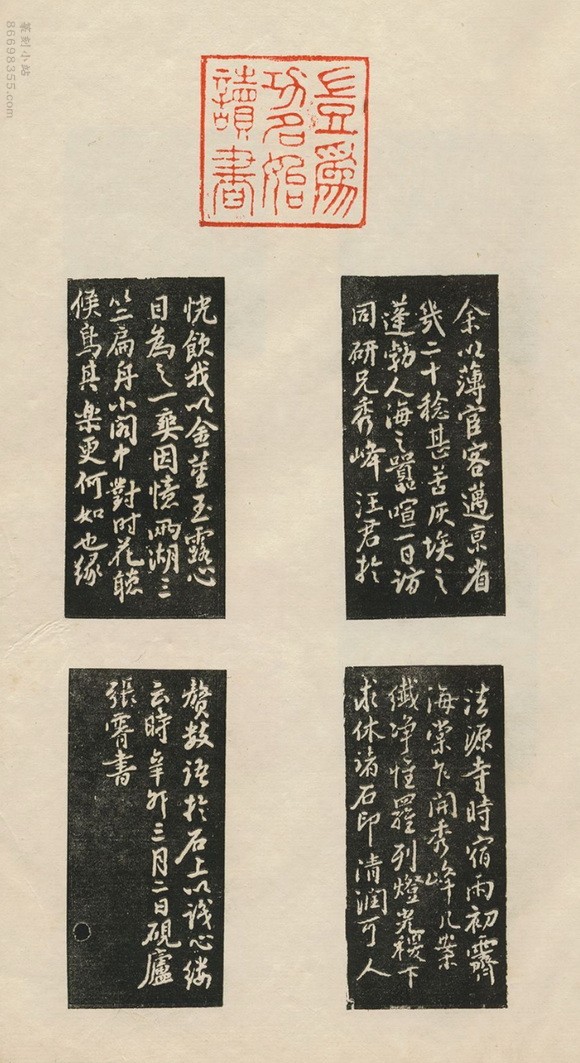 豈為
功名始
讀書
余以薄官客邁京省
幾二十稔甚苦灰埃之
蓬勃人海之囂喧一日訪
同研兄秀峰汪君於
法源寺時宿雨初霽
海棠乍開秀峰几案
纖淨惟羅列燈光稷下
求休諸石印清潤可人
恍飲我以金莖玉露心
目為之一爽因憶兩湖三
竺扁舟小閣中對時花聽
候鳥其樂更何如也緣
贅數語於石上以識心縷
云時辛卯三月二日硯廬
張書
篆刻小站
86698355.com